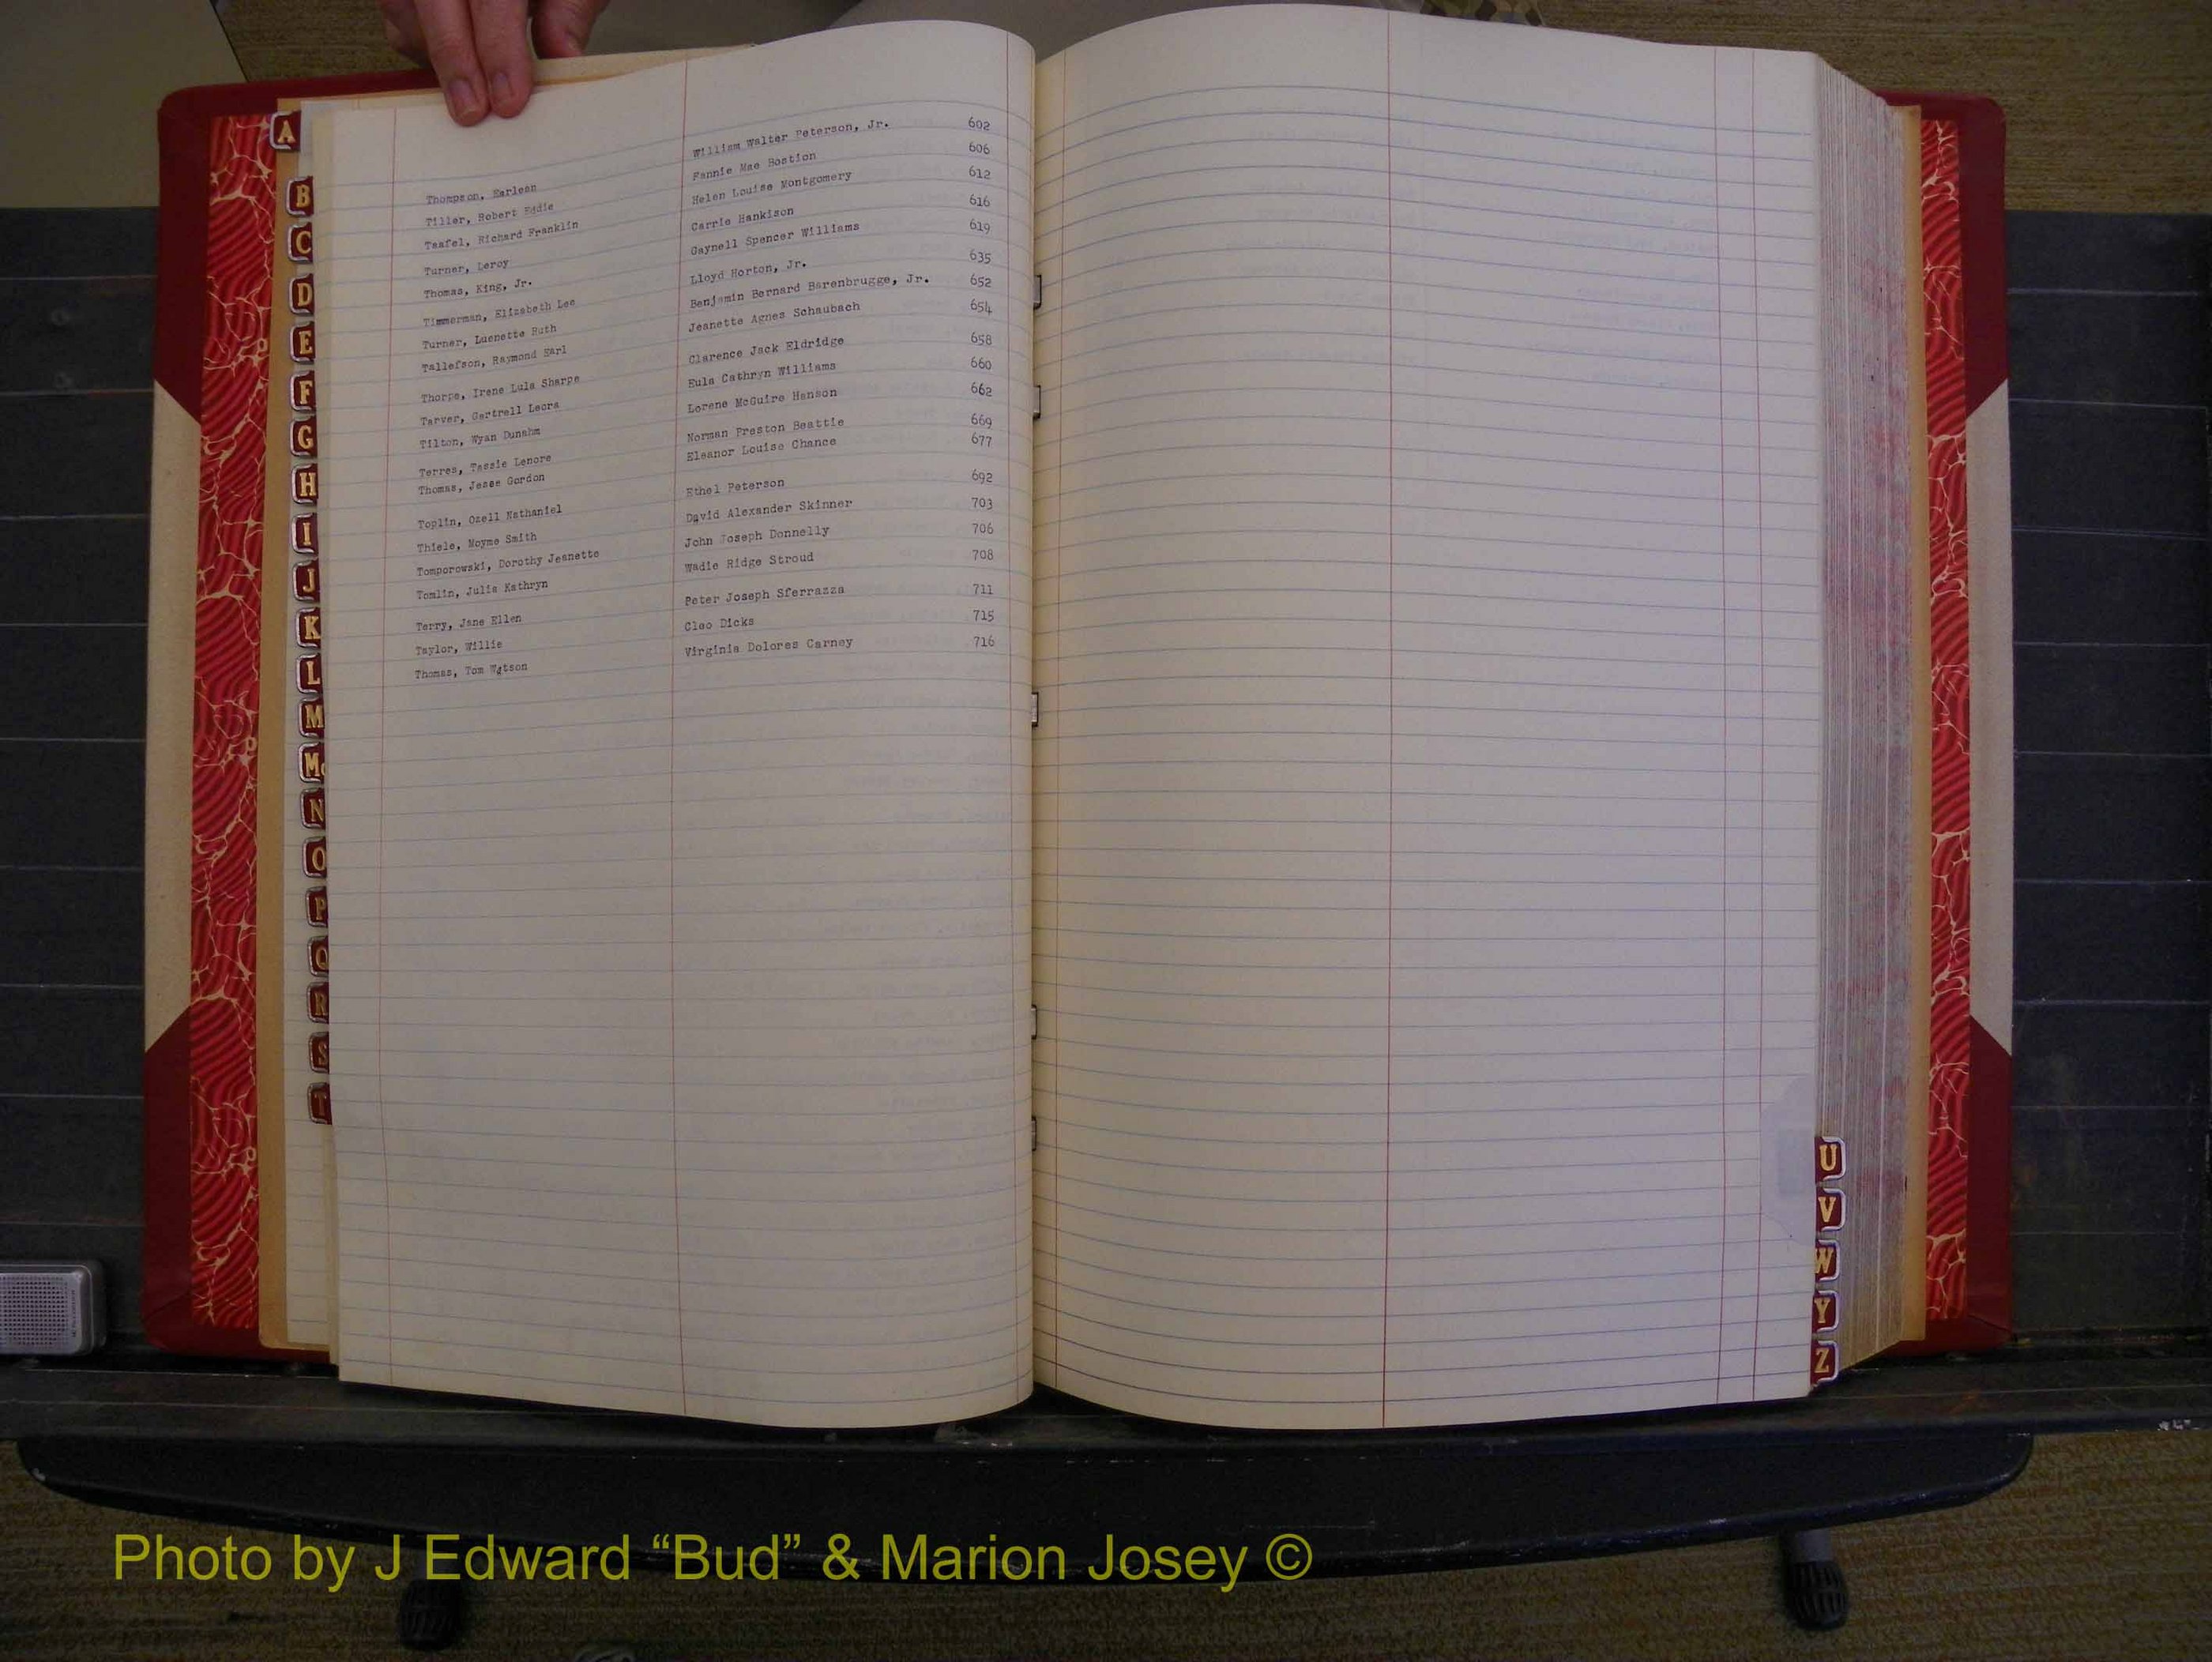 Thompson, Earlean William Walter Peterson, Jr. 602
Tiller, Robert Eddie Fannie Mae Bostion 606
Taafel, Richard Franklin Helen Louise Montgomery 612
Turner, Leroy Carrie Hankison 616
Thomas, King, Jr. Gaynell Spencer Williams 619
Timmerman, Elizabeth Lee Lloyd Horton, Jr. 635
Turner, Luenette Ruth Benjamin Bernard Barenbrugge, Jr. 652
Tallefson, Raymond Earl Jeanette Agnes Schaubach 654
Thorpe, Irene Lula Sharpe Clarence Jack Eldridge 658
Tarver, Gartrell Leora Eula Cathryn Williams 660
Tilton, Wyan Dunahm Lorene McGuire Hanson 662
Terres, Tassie Lenore Norman Preston Beattie 669
Thomas, Jesse Gordon Eleanor Louise Chance 677
Toplin, Ozell Nathaniel Ethel Peterson 692
Thiele, Moyme Smith David Alexander Skinner 703
Tomporowski, Dorothy Jeanette John Joseph Donnelly 706
Tomlin, Julia Kathryn Wadie Ridge Stroud 708
Terry, Jane Ellen Peter Joseph Sferrazza 711
Taylor, Willie Cleo Dicks 715
Thomas, Tom Watson Virginia Dolores Carney 716
A
B
C
D
E
F
G
H
I
J
K
L
M
Mc
N
O
P
Q
R
S
T
U
V
W
Y
Z
Photo by J Edward “Bud” & Marion Josey ©